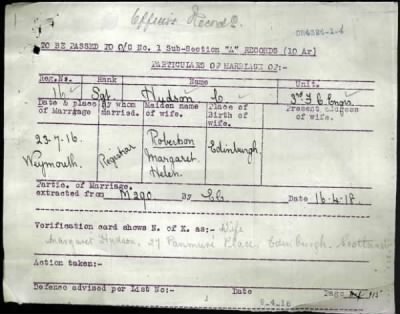 Effective Records.
CR4326-1-4
TO BE PASSED TO O/C No. 1 Sub-Section "A" RECORDS (10 Ar)
PARTICULARS OF MARRIAGE OF:-
Reg.No. Rank Name Unit.
16 Sgt Hudson C 3rd F C Engrs.
Date & place of Marriage By whom married. Maiden name of wife. Place of Birth of wife. Present address of wife.
23-7-16. Weymouth. Registrar Robertson Margaret Helen Edinburgh.
Partic. of Marriage.
extracted from M290 By Date 16-4-18.
Verification card shows N. of K. as:- Wife
Margaret Hudson, 27 Panmure Place, Edinburgh, Scotland
Action taken:-
Defence advised per List No:- Date Page
8-4-18